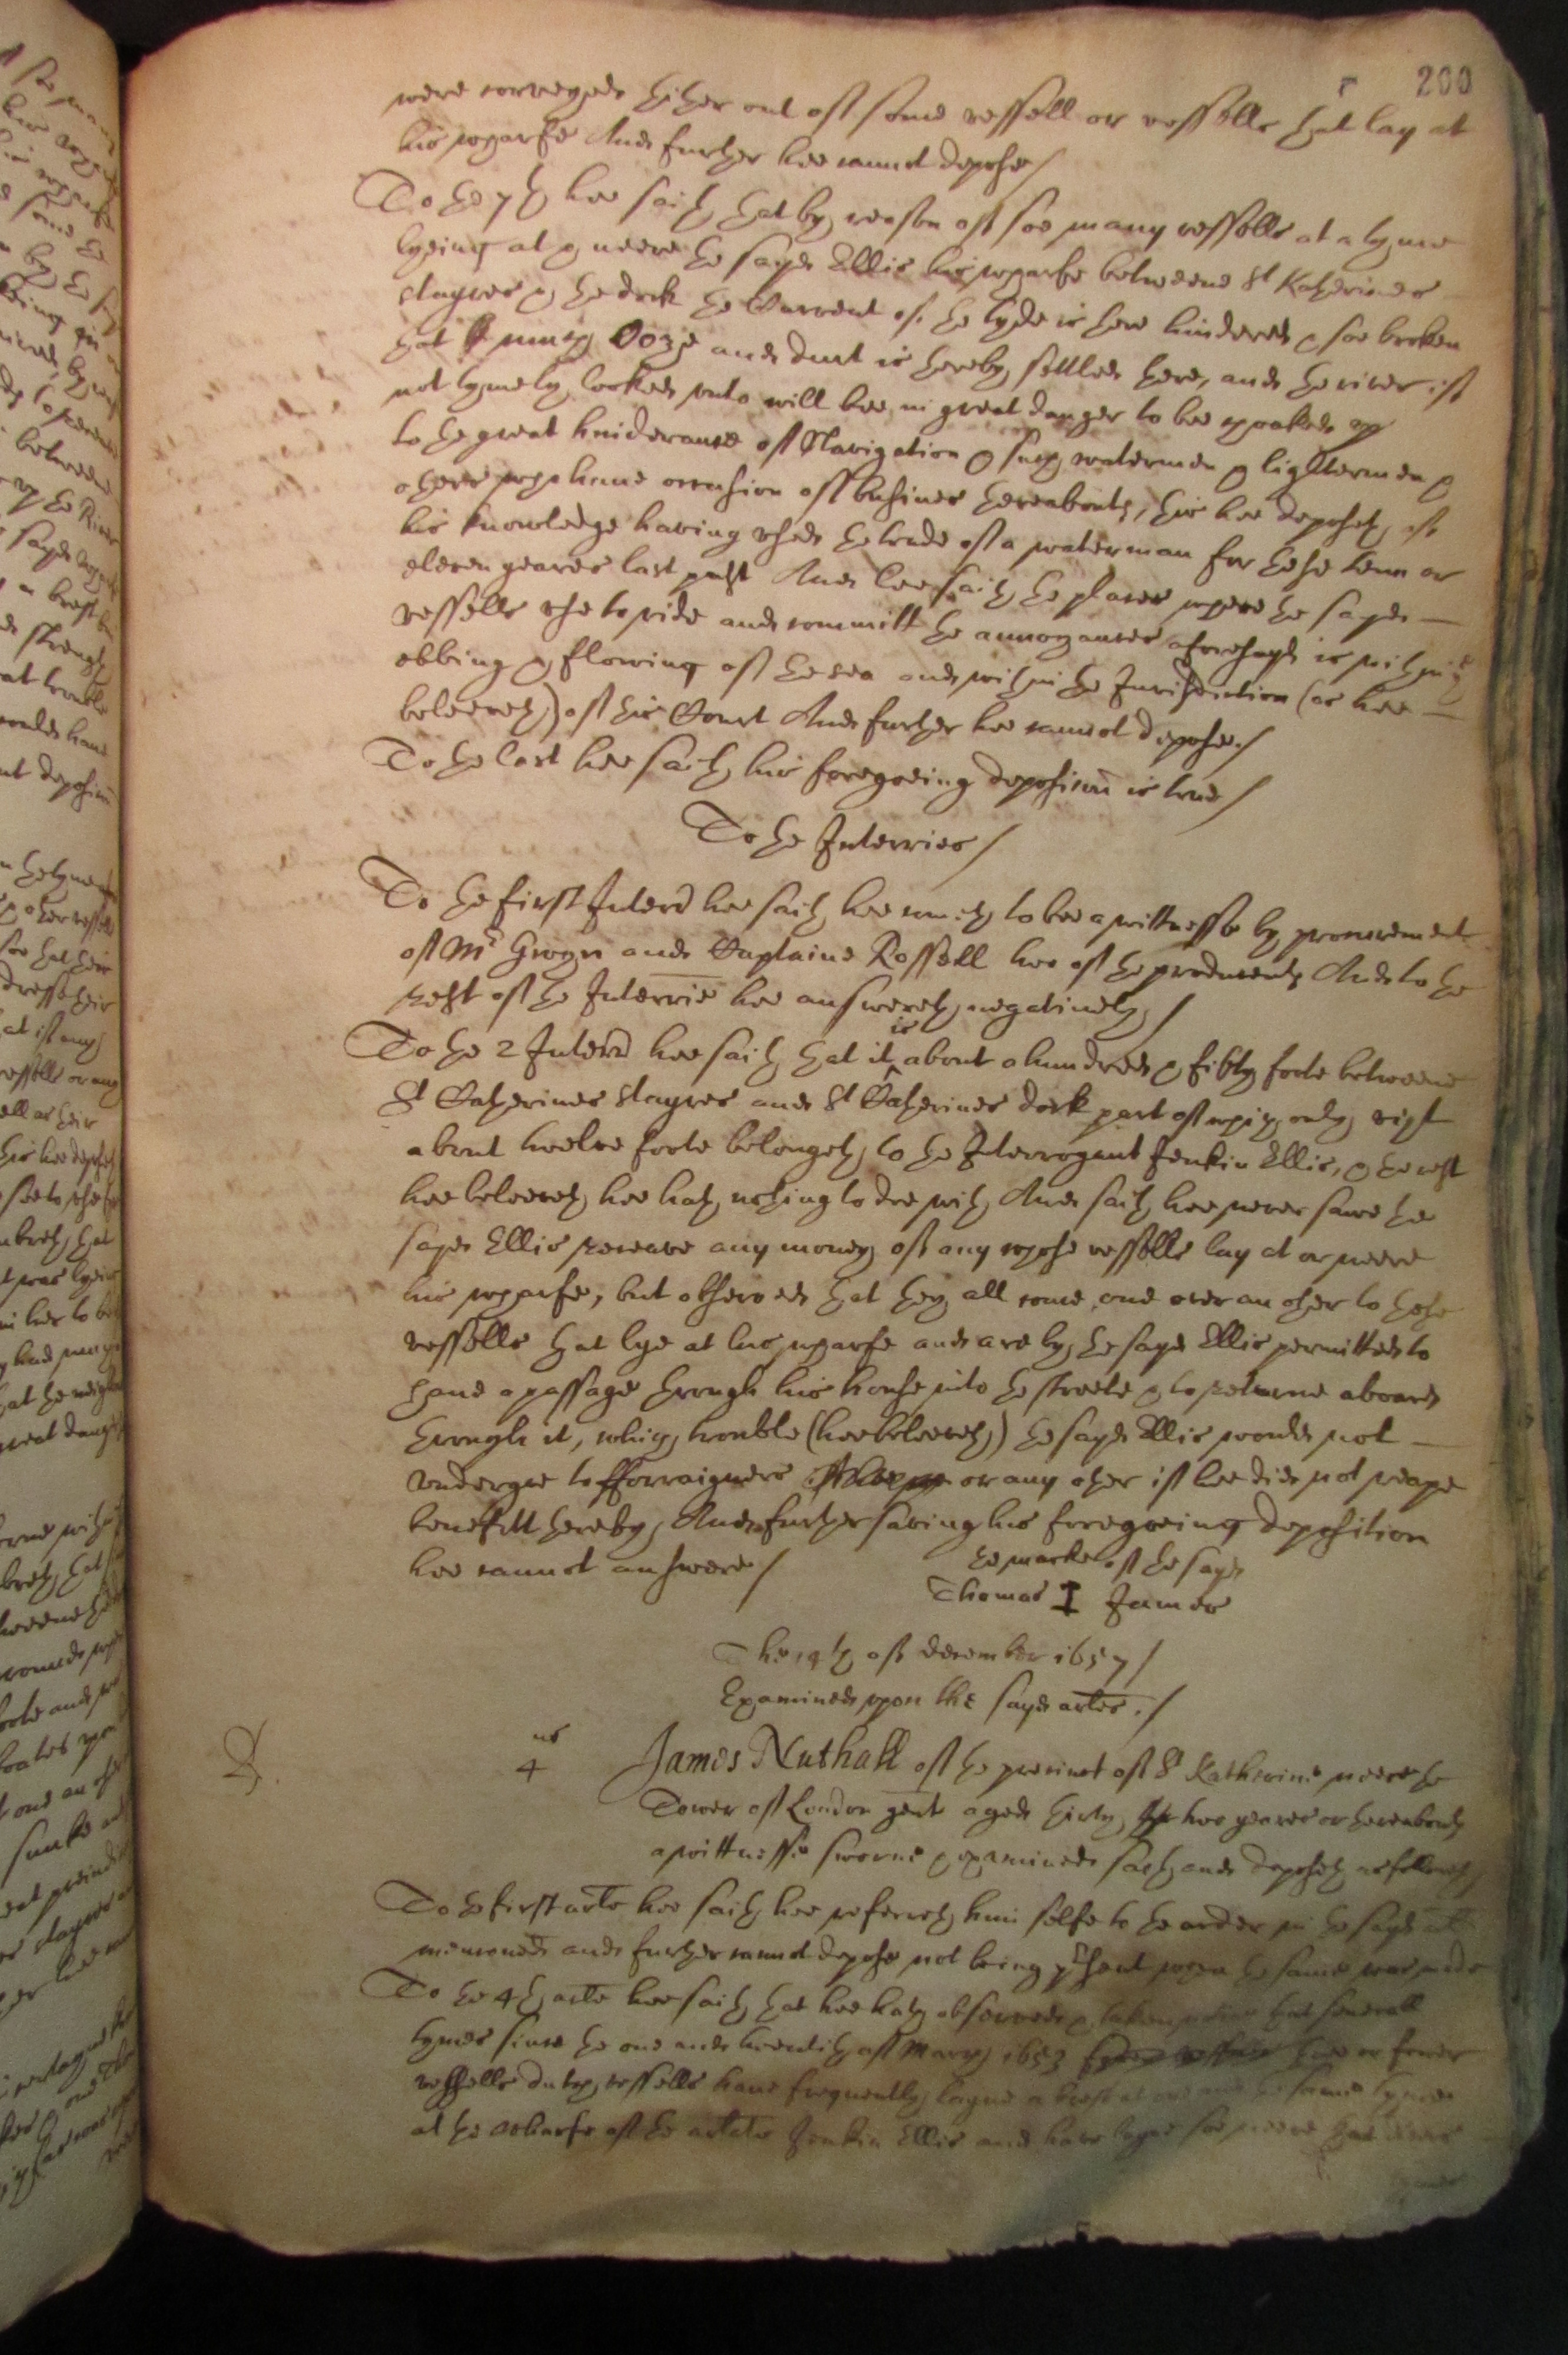 200
were conveyed thither out of some vessell or vessells that lay at
his wharfe And further hee cannot depose/
To the 7th hee saith that by reason of soe many vessells at a tyme
lyeing at & neere the sayd Ellis his wharfe betweene St Katherines
stayres & the dock the Current of the tyde is there hindered & soe broken
that much Ooze and durt is thereby settled there, and the river if
not tymely looked unto will bee in great danger to bee choaked up
to the great hinderance of Navigation & such watermen & lightermen &
others who have occasion of busines thereabouts, this hee deposeth of
his knowledge having used the trade of a waterman for these tenn or
eleven yeares last past And hee saith the places where the sayd
vessells use to ride and committ the annoyances aforesayd is within the
ebbing & flowing of the sea and within the Jurisdiction (as hee
beleeveth) of this Court And further hee cannot depose./
To the last hee saith his foregoeing deposition is true/
To the Interries/
To the first Interr hee saith hee cometh to bee a wittnesse by procurement
of Mr Gwyn and Captaine Rossell two of the producents And to the
rest of the Interrie hee answereth negatively/
To the 2 Interr hee saith that it is about a hundred & fifty foote betweene
St Catherines stayres and St Catherines dock part of which only vizt
about twelve foote belongeth to the Interrogant Jenkin Ellis, & the rest
hee beleeveth hee hath nothing to doe with And saith hee never sawe the
sayd Ellis receave any money of any whose vessells lay at or neere
his wharfe, but observed that they all come one over an other to those
vessells that lye at his wharfe and are by the sayd Ellis permitted to
have a passage through his house into the streete & to returne aboard
through it, which trouble (hee beleeveth) the sayd Ellis would not
undergoe to fforraigners or any other if hee did not reape
benefitt thereby, And further saving his foregoeing deposition
hee cannot answere/
the marke of the sayd
Thomas I James
The 14th of December 1657/
Examined upon the sayd artes./
James Nuthall of the precinct of St Katherine neere the
4us
Tower of London gent aged thirty two yeares or thereabouts
a wittnesse sworne & examined saith and deposeth as followeth
To the first arte hee saith hee referreth him selfe to the order in the sayd arte
mencioned and further cannot depose not being present when the same was made
To the 4th arte hee saith that hee hath observed & taken notice that severall
tymes since the one and twentith of March 1653 three or fower
vessells dutch vessells have frequently layne a brest at one and the same tyme
at the wharfe of the arlate Jenkin Ellis and have layne soe neere